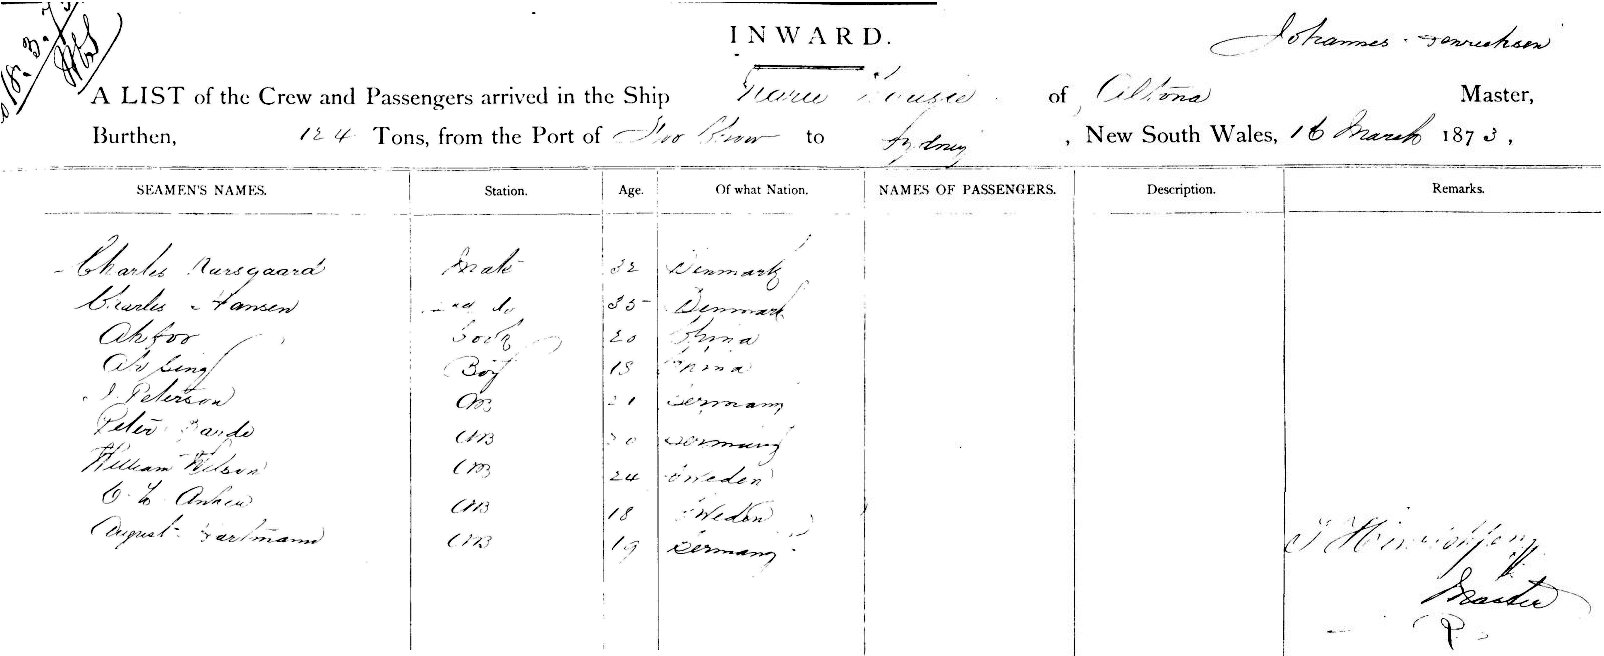 18. 3. 73
INWARD.
Johannes Henrichsen
A LIST of the Crew and Passengers arrived in the Ship Marie Louise of Altona Master,
Burthen, 124 Tons, from the Port of Foo Chow to Sydney, New South Wales, 16 March 1873,
SEAMEN'S NAMES. Station. Age. Of what Nation. NAMES OF PASSENGERS. Description. Remarks.
Charles Nursgaard Mate 32 Denmark
Charles Hansen 2nd do 35 Denmark
Ah foo Cook 20 China
Ah Sing Boy 18 China
J. Peterson AB 21 Germany
Peter AB 30 Germany
William Wilson AB 24 Sweden
C. AB 18 Sweden
August Hartmann AB 19 Germany
J Hinrichsen
Master